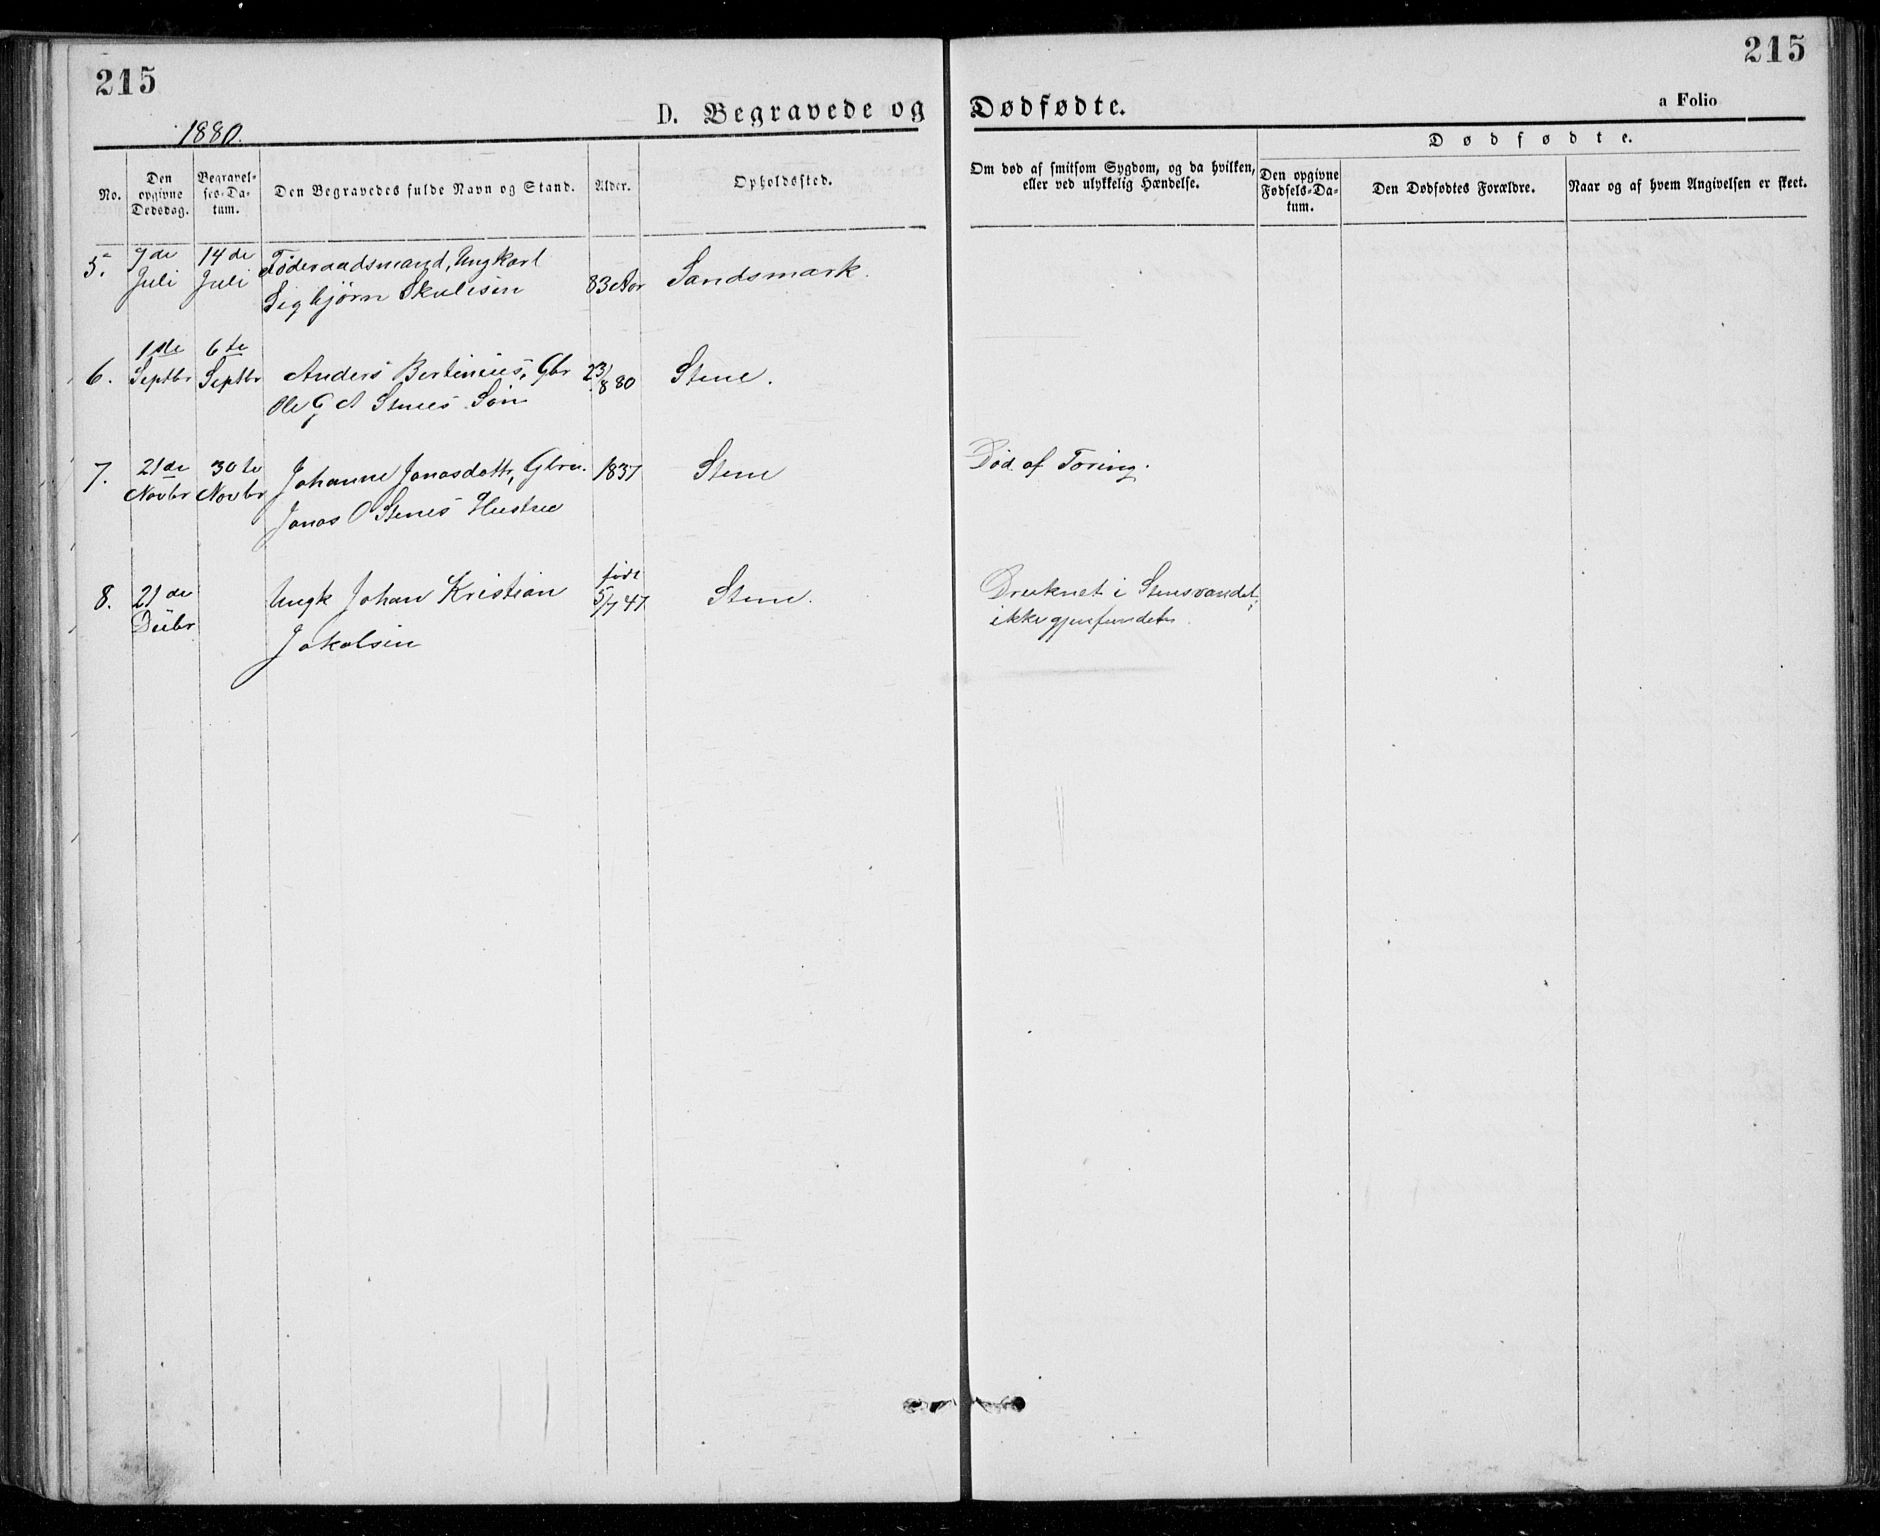 215
215
D. Begravede og Dødfødte.
a Folio
1880.
No.
Den opgivne Dødsdag.
Begravelses-Datum.
Den Begravedes fulde Navn og Stand.
Alder.
Opholdssted.
Om død af smitsom Sygdom, og da hvilken,
eller ved ulykkelig Hændelse.
Dødfødte.
Den opgivne Fødsels-Datum.
Den Dødfødtes Forældre.
Naar og af hvem Angivelsen er skeet.
5. 7de 14de Føderaadsmand, Ungkarl
Juli Juli Sigbjørn Skulesen 83 Aar Sandsmark.
1ste 6te
6. Septbr Septbr Anders Bertinius, Gbr 23/8 80 Stene.
Ole G A Stenes Søn
7. 21de 30te Johanne Jonasdattr, Gbru. 1837 Stene Død af Tæring.
Novbr Novbr Jonas O Stenes Hustru
født
8. 21de Ungk Johan Kristian 5/7 47 Stene. Druknet i Stensvandet,
Decbr Jakobsen ikke gjenfundet.